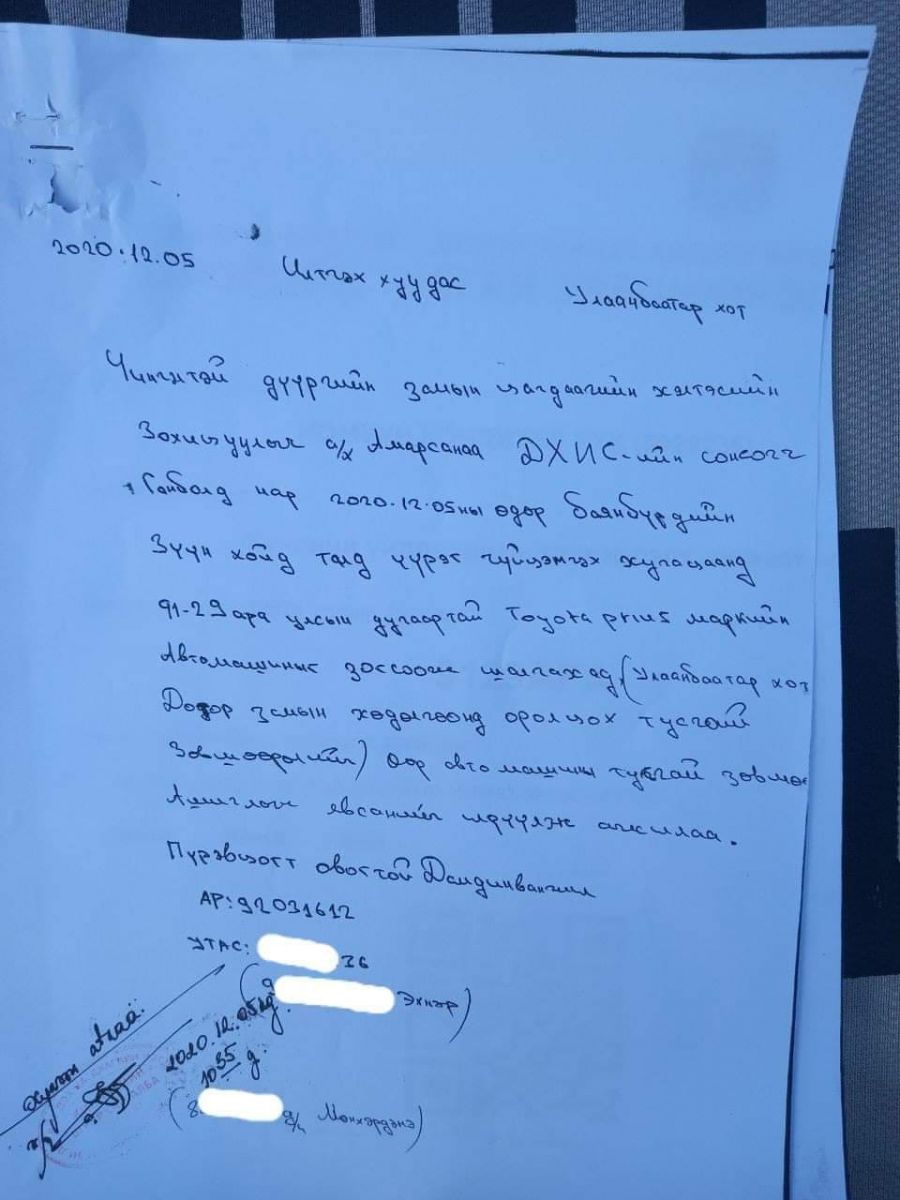 2020.12.05 Илтгэх хуудас Улаанбаатар хот
Чингэлтэй дүүргийн замын цагдаагийн хэлтэсийн
Зохицуулагч а/х Амарсанаа ДХИС-ийн сонсогч
Ганболд нар 2020.12.05ны өдөр Баянбүрдийн
Зүүн хойд талд үүрэг гүйцэтгэх хугацаанд
91-29 ара улсын дугаартай Toyota prius маркийн
Автомашиныг зогсоож шалгахад, (Улаанбаатар хот
Дотор замын хөдөлгөөнд оролцох тусгай
Зөвшөөрлийг) Өөр автомашины тусгай зөвшөө
Ашиглаж явсаныг илрүүлж ажиллаа.
Пүрэвцогт овогтой Далдинвангил
АР:92031612
УТАС: 36
(9 Эхнэр)
2020.12.05нд.
10 35 д.
(8 д/ч Мөнхэрдэнэ)